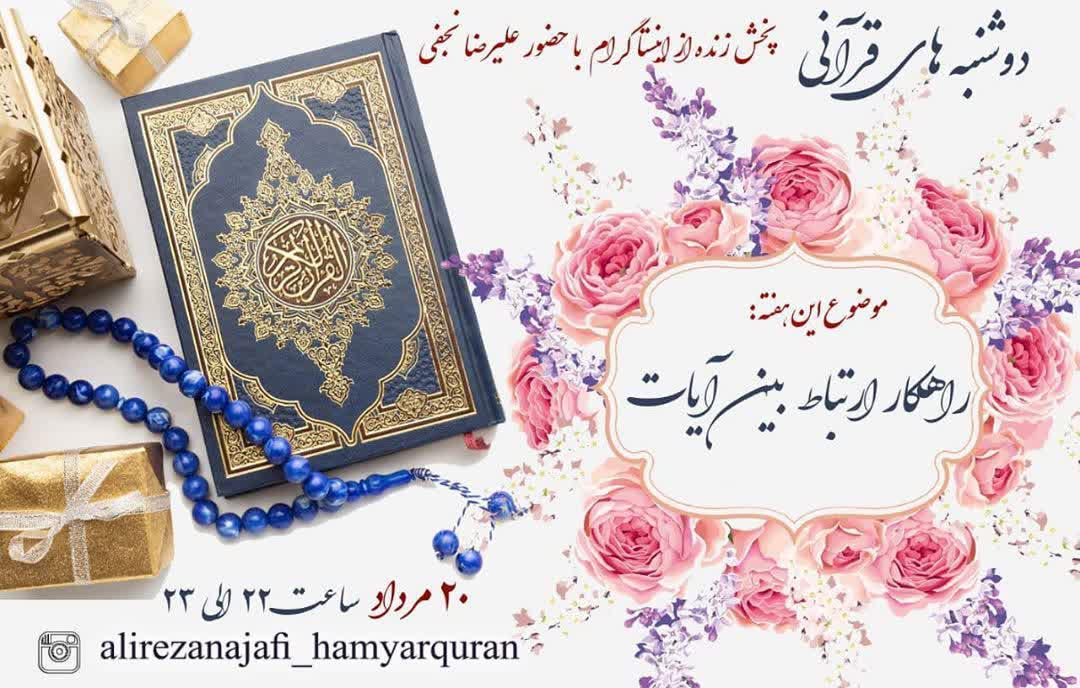 دوشنبه های قرآنی
پخش زنده از اینستاگرام با حضور علیرضا نجفی
موضوع این هفته:
راهکار ارتباط بین آیات
القرآن الکریم
۲۰ مرداد ساعت ۲۲ الی ۲۳
alirezanajafi_hamyarquran